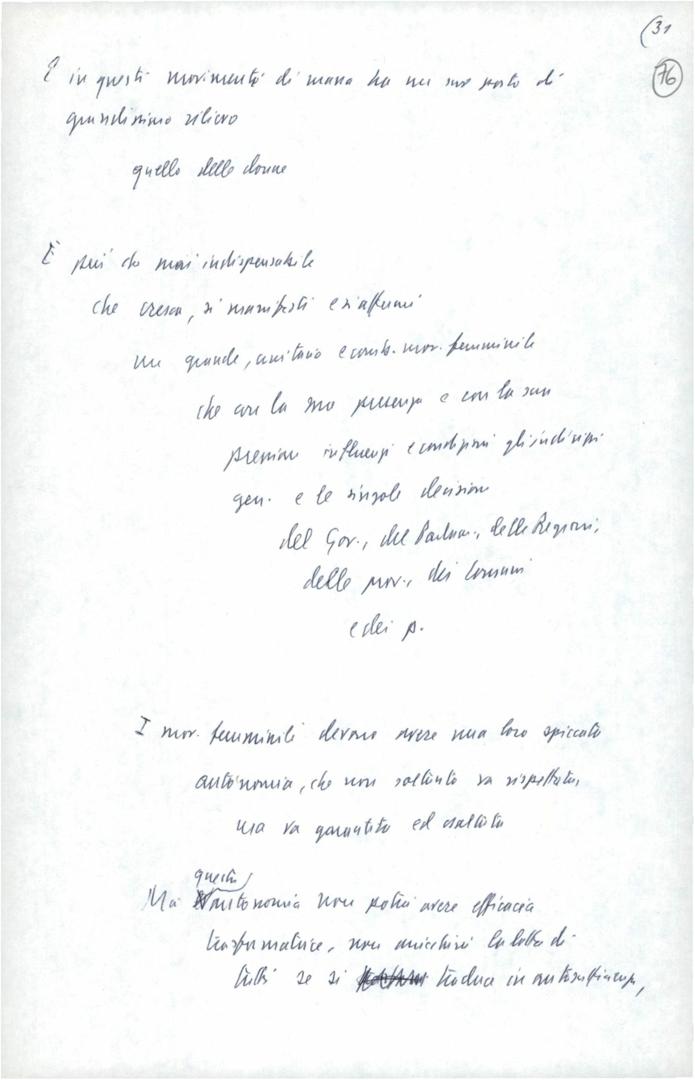 (31
76
E in questi movimenti di massa ha un suo posto di
grandissimo rilievo
quello delle donne
È più che mai indispensabile
che cresca, si manifesti e si affermi
un grande, unitario e comb. mov. femminile
che con la sua presenza e con la sua
pressione influenzi e condizioni gli indirizzi
gen. e le singole decisioni
del Gov., del Parlam., delle Regioni,
delle prov., dei Comuni
e dei p.
I mov. femminili devono avere una loro spiccata
autonomia, che non soltanto va rispettata,
ma va garantita ed esaltata
questa
Ma autonomia non potrà avere efficacia
trasformatrice, non arricchirà la lotta di
tutti se si traduce in autosufficienza,